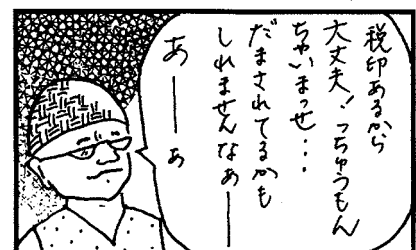 税印あるから
大丈夫！っちゅうもん
ちゃいまっせ・・・
だまされてるかも
しれませんなぁ――
あ――ぁ